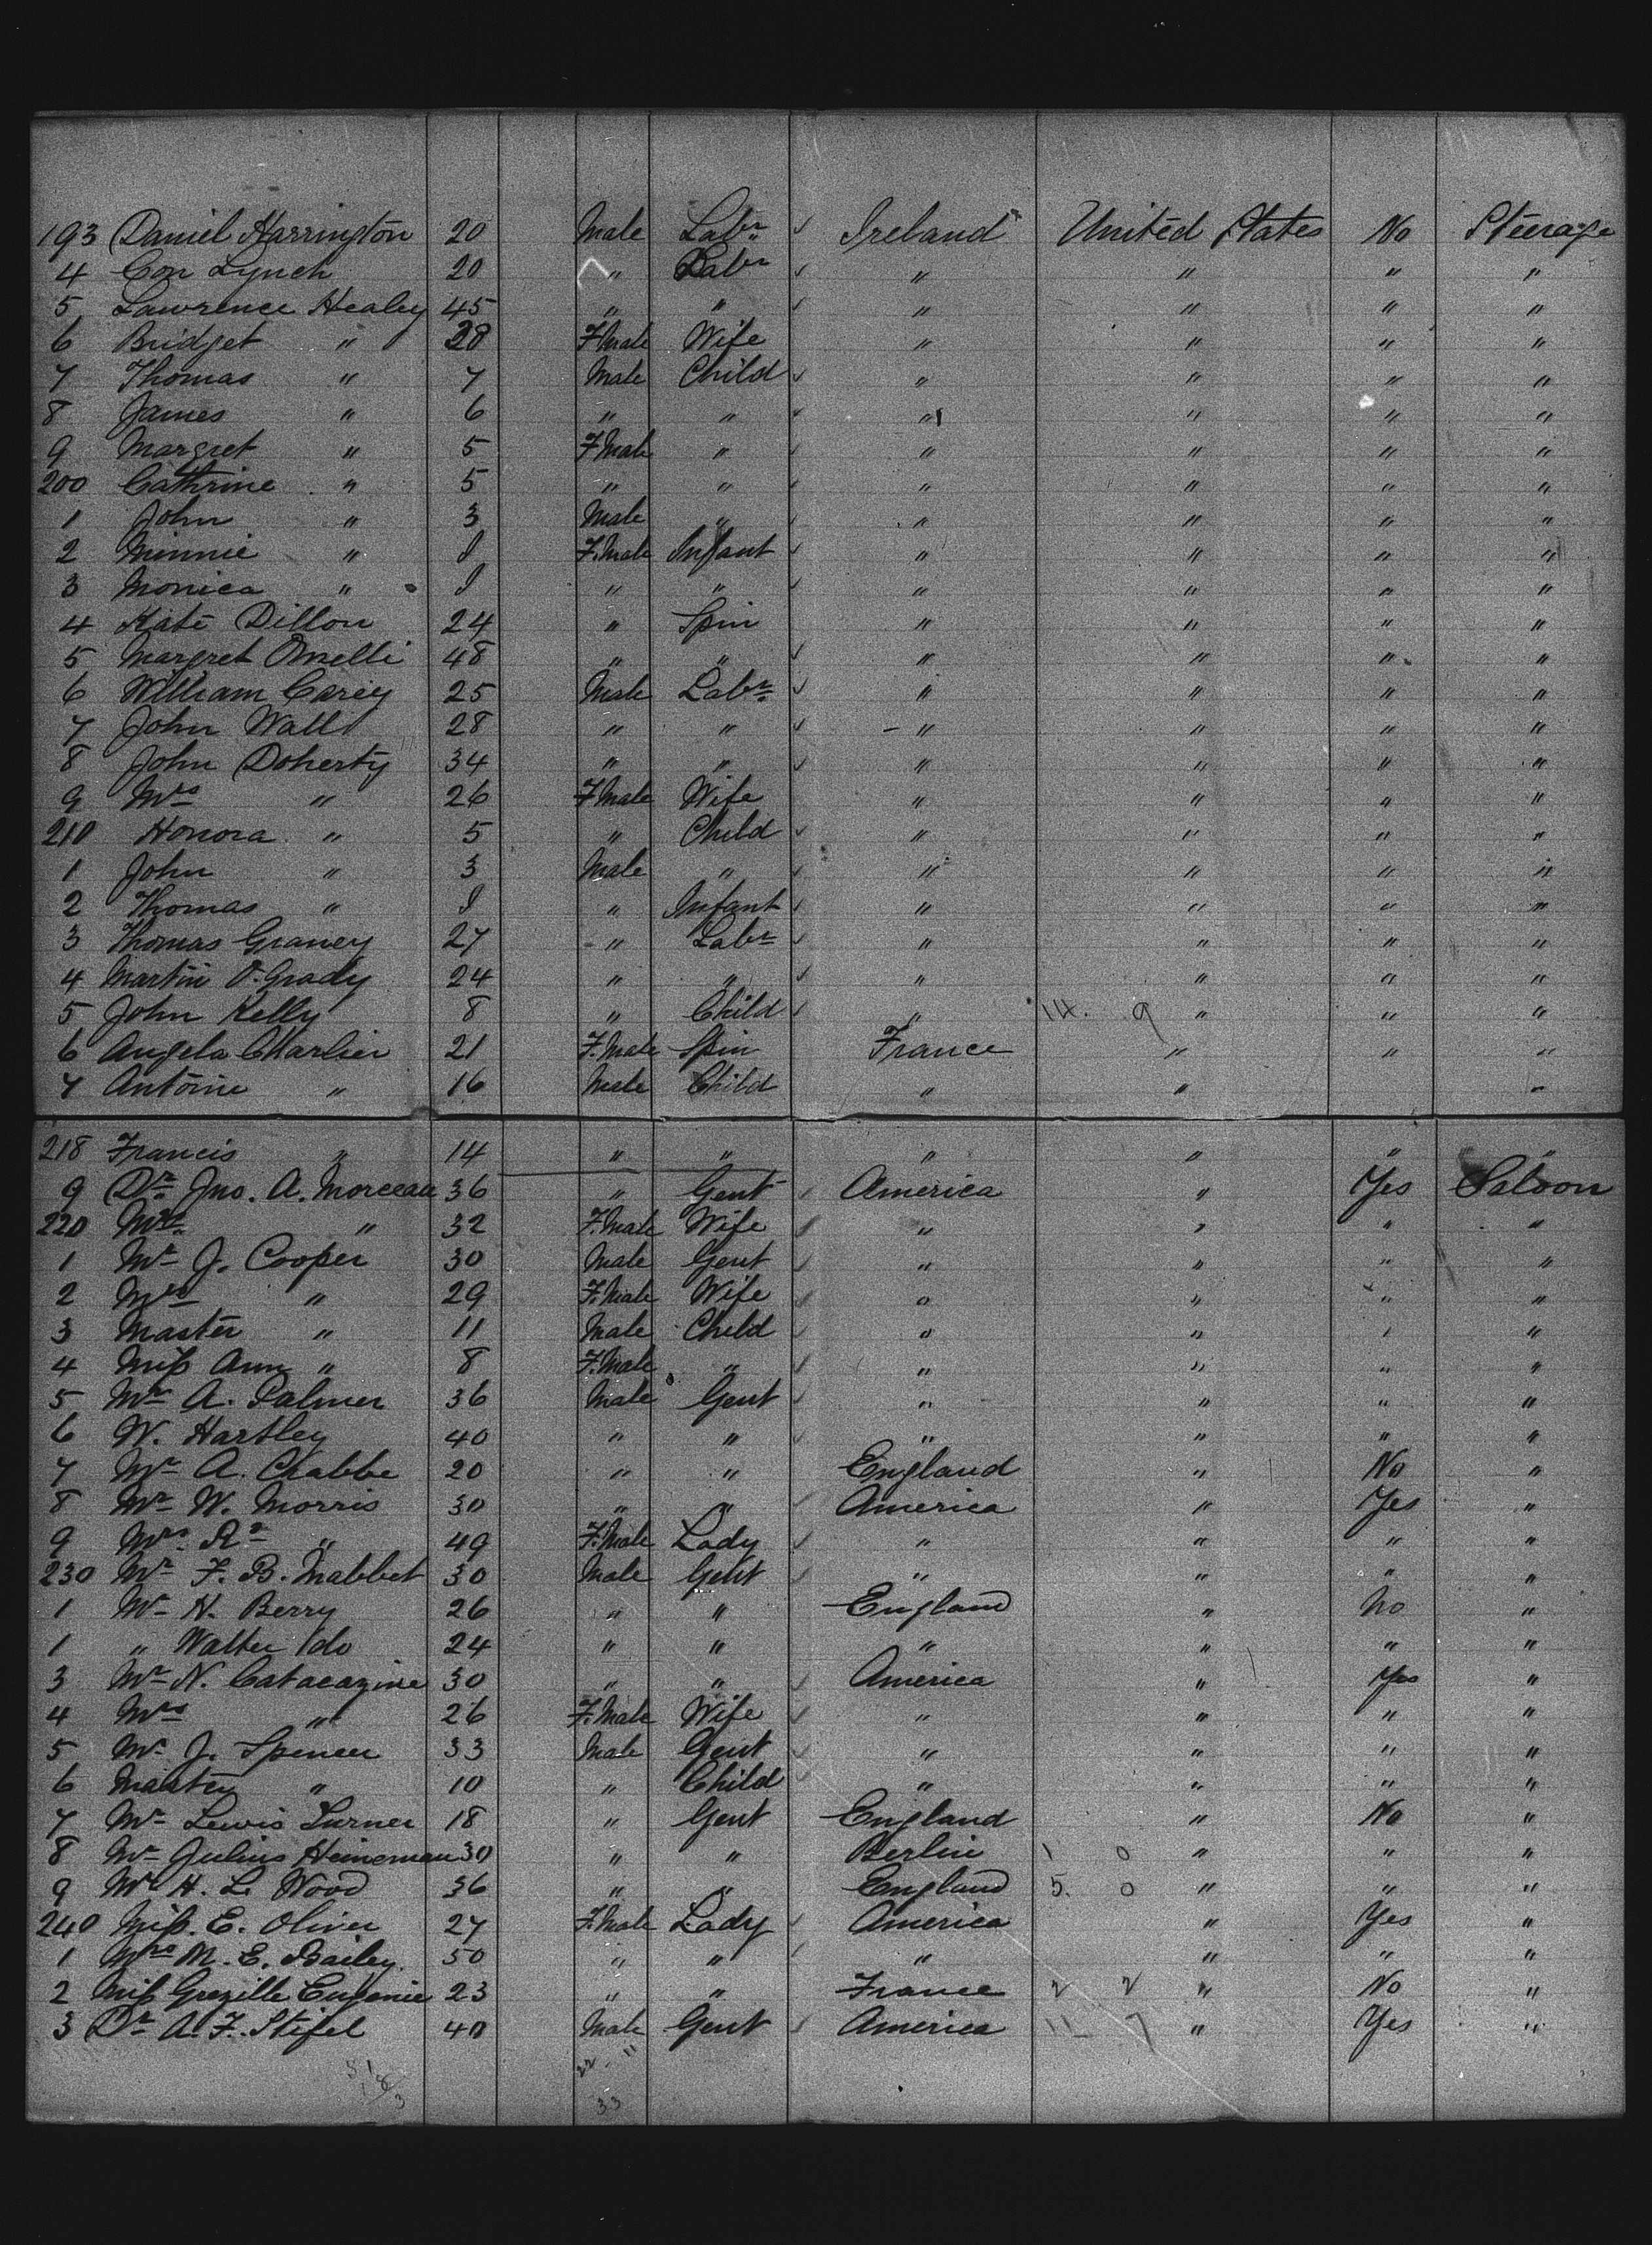 193 Daniel Harrington 20 Male Labr Ireland United States No Steerage
4 Con Lynch 20 " Labr " " " "
5 Lawrence Healey 45 " " " " " "
6 Bridget " 28 F.Male Wife " " " "
7 Thomas " 7 Male Child " " " "
8 James " 6 " " " " " "
9 Margret " 5 F.Male " " " " "
200 Cathrine " 5 " " " " " "
1 John " 3 Male " " " " "
2 Minnie " I F.Male Infant " " " "
3 Monica " I " " " " " "
4 Kate Dillon 24 " Spin " " " "
5 Margret 48 " " " " " "
6 William Carey 25 Male Labr " " " "
7 John Wall 28 " " " " " "
8 John Doherty 34 " " " " " "
9 Mrs " 26 F.Male Wife " " " "
210 Honora " 5 " Child " " " "
1 John " 3 Male " " " " "
2 Thomas " I " Infant " " " "
3 Thomas Graney 27 " Labr " " " "
4 Martin O'Grady 24 " " " " " "
5 John Kelly 8 " Child " 14. 9 " " "
6 Angela Charlier 21 F.Male Spin France " " "
7 Antoine " 16 Male Child " " "
218 Francis " 14 " " " " " "
9 Dr Jno. A. Morceau 36 " Gent America " Yes Saloon
220 Mrs " 32 F.Male Wife " " " "
1 Mr J. Cooper 30 Male Gent " " " "
2 Mrs " 29 F.Male Wife " " " "
3 Master " 11 Male Child " " " "
4 Miss Ann " 8 F.Male " " " " "
5 Mr A. Palmer 36 Male Gent " " " "
6 W. Hartley 40 " " " " " "
7 Mr A. Crabbe 20 " " England " No "
8 Mr W. Morris 30 " " America " Yes "
9 Mrs " 49 F.Male Lady " " " "
230 Mr F. B. Mabbet 30 Male Gent " " " "
1 Mr H. Berry 26 " " England " No "
1 " Walter do 24 " " " " " "
3 Mr N. Catacazine 30 " " America " Yes "
4 Mrs " 26 F.Male Wife " " " "
5 Mr J. Spencer 33 Male Gent " " " "
6 Master " 10 " Child " " " "
7 Mr Lewis Turner 18 " Gent England " No "
8 Mr Julius Heineman 30 " " Berlin 1 0 " " "
9 Mr H. L. Wood 36 " " England 5. 0 " " "
240 Miss. E. Oliver 27 F.Male Lady America " Yes "
1 Mrs M. E. Bailey. 50 " " " " " "
2 Miss Grezille Eugenie 23 " " France 2 2 " No "
3 Dr A. F. Stifel 40 Male Gent America 11 7 " Yes "
22 11
33